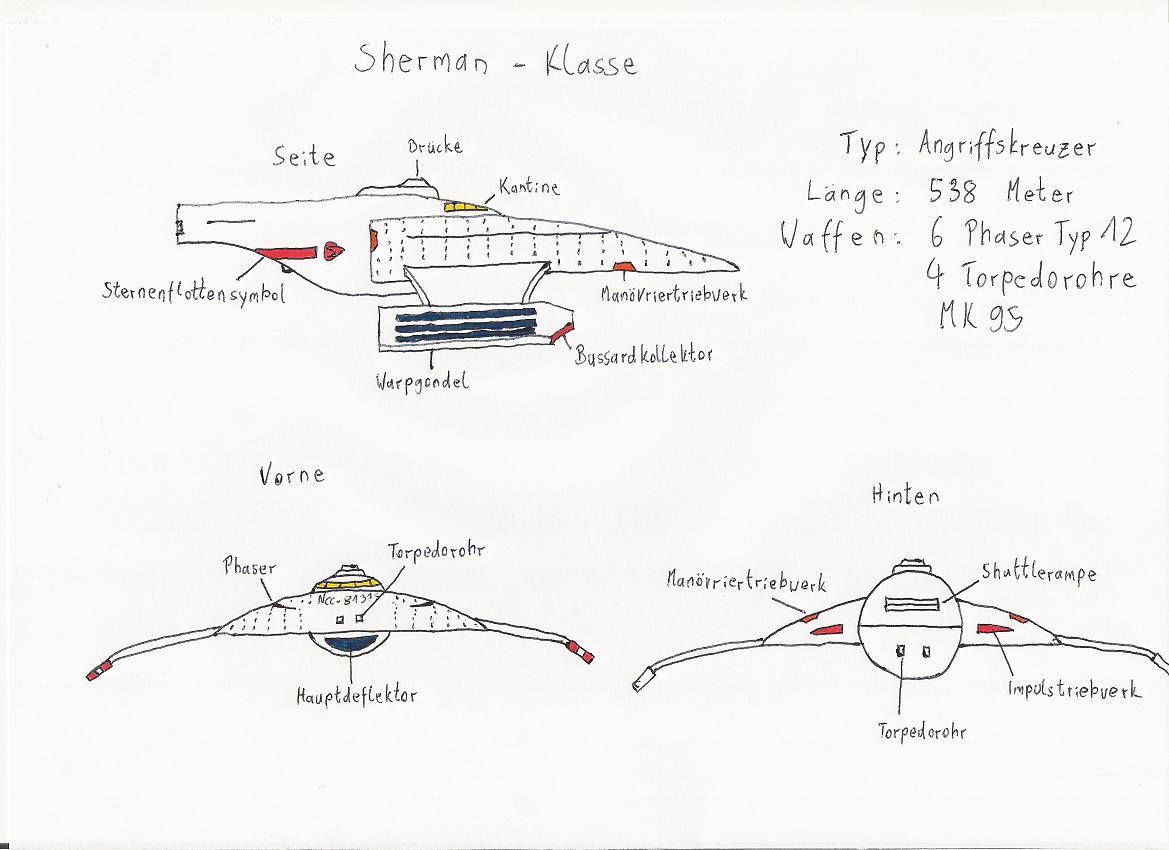 Sherman - Klasse
Seite
Brücke
Kantine
Sternenflottensymbol
Manövriertriebwerk
Bussardkollektor
Warpgondel
Typ: Angriffskreuzer
Länge: 538 Meter
Waffen: 6 Phaser Typ 12
4 Torpedorohre
MK 95
Vorne
Phaser
Torpedorohr
Hauptdeflektor
Hinten
Manövriertriebwerk
Shuttlerampe
Impulstriebwerk
Torpedorohr